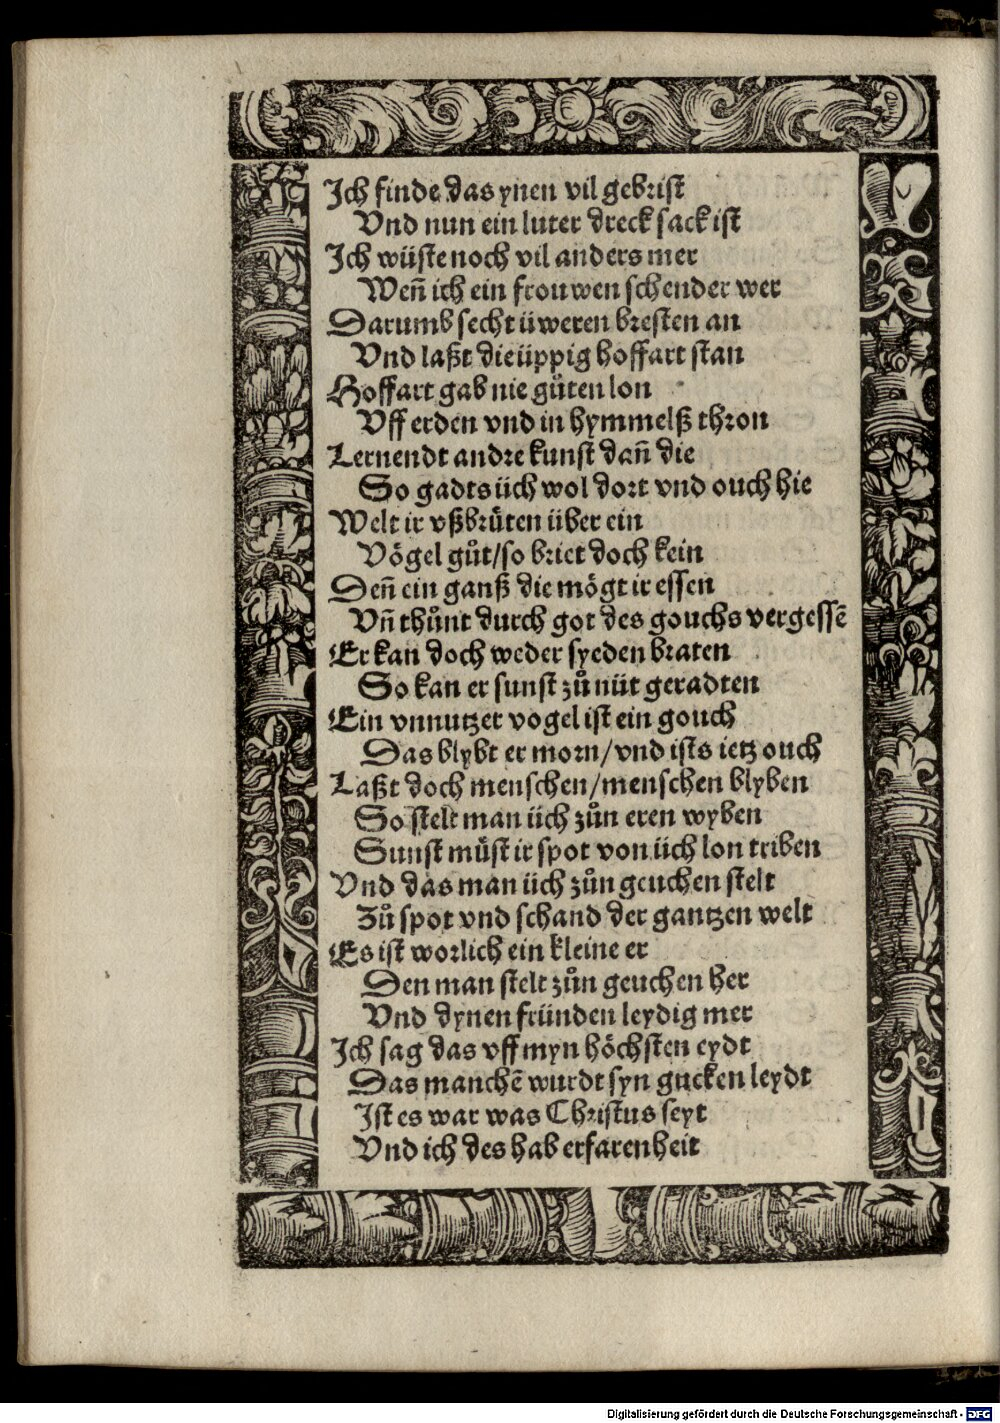 Ich finde das ynen vil gebrist
Vnd nun ein luter dreck sack ist
Ich wüste noch vil anders mer
Weñ ich ein frouwen schender wer
Darumb secht üweren bresten an
Vnd laßt die üppig hoffart stan
Hoffart gab nie gůten lon
Vff erden vnd in hymmelß thron
Lernendt andre kunst dañ die
So gadts üch wol dort vnd ouch hie
Welt ir vßbrůten über ein
Vögel gůt/so briet doch kein
Deñ ein ganß die mögt ir essen
Vñ thůnt durch got des gouchs vergessẽ
Er kan doch weder syeden braten
So kan er sunst zů nüt geradten
Ein vnnutzer vogel ist ein gouch
Das blybt er morn/vnd ists ietz ouch
Laßt doch menschen/menschen blyben
So stelt man üch zůn eren wyben
Sunst můst ir spot von üch lon triben
Vnd das man üch zůn geuchen stelt
Zů spot vnd schand der gantzen welt
Es ist worlich ein kleine er
Den man stelt zůn geuchen her
Vnd dynen fründen leydig mer
Ich sag das vff myn höchsten eydt
Das manchẽ wurdt syn gucken leydt
Ist es war was Christus seyt
Vnd ich des hab erfarenheit
Digitalisierung gefördert durch die Deutsche Forschungsgemeinschaft - DFG